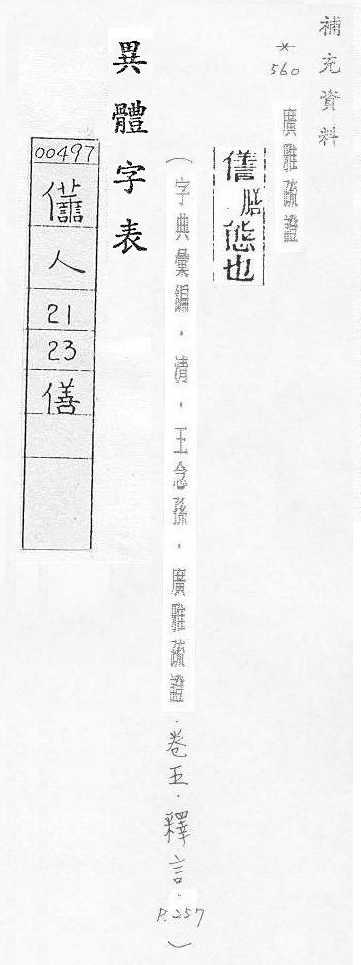 補充資料
*
560
廣雅疏證
僐態也
（字典彙編．清．王念孫．廣雅疏證．卷五．釋言．P.257）
異體字表
00497
人
21
23
僐